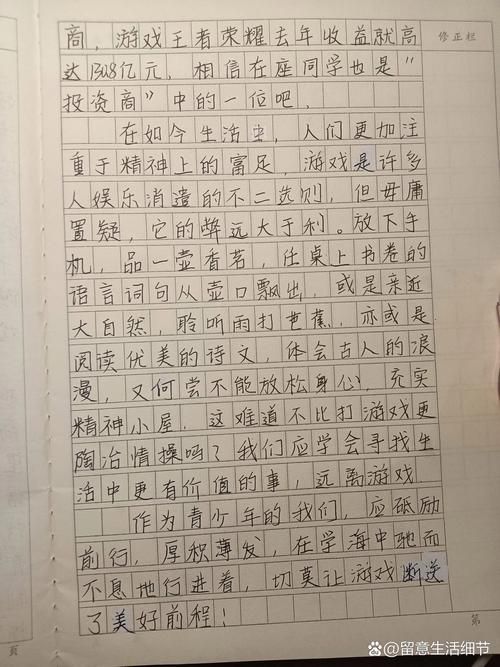 商，游戏王者荣耀去年收益就高
修正栏
达1308亿元，相信在座同学也是“
投资商”中的一位吧．
在如今生活中，人们更加注
重于精神上的富足，游戏是许多
人娱乐消遣的不二选则，但毋庸
置疑，它的弊远大于利。放下手
机，品一壶香茗，任桌上书卷的
语言词句从壶口飘出，或是亲近
大自然，聆听雨打芭蕉，亦或是
阅读优美的诗文，体会古人的浪
漫，又何尝不能放松身心，充实
精神小屋．这难道不比打游戏更
陶冶情操吗？我们应学会寻找生
活中更有价值的事，远离游戏．
作为青少年的我们，应砥励
前行，厚积薄发，在学海中驰而
不息地行进着，切莫让游戏断送
了美好前程！
頁
第
百度 @留意生活细节